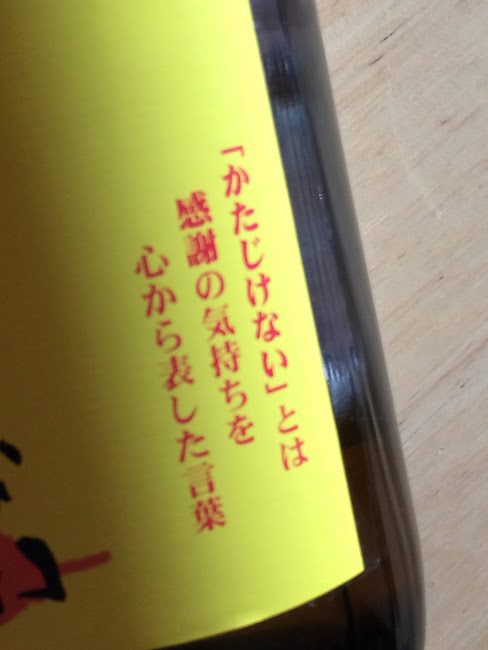 「かたじけない」とは
感謝の気持ちを
心から表した言葉